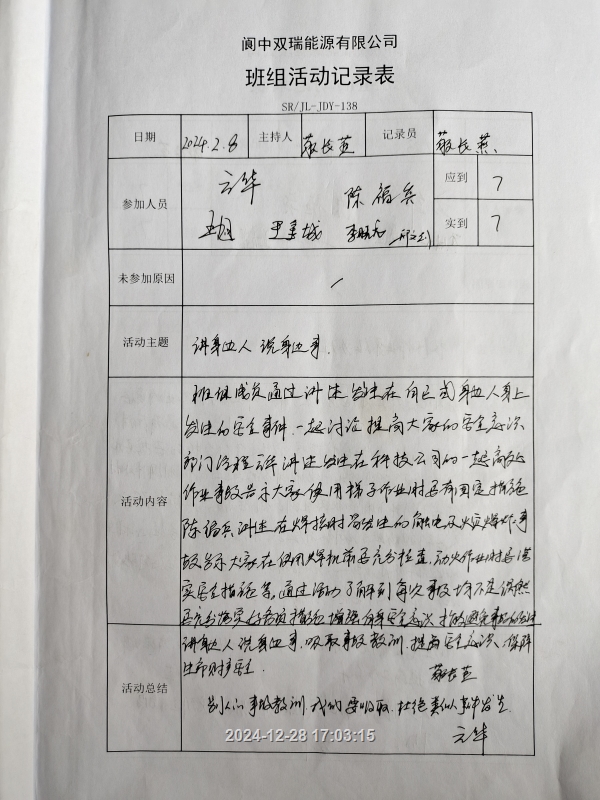 阆中双瑞能源有限公司
班组活动记录表
SR/JL-JDY-138
日期 2024.2.8 主持人 记录员
参加人员 云华 陈福兵 应到 7
实到 7
未参加原因 /
活动主题 讲身边人 说身边事.
班组成员通过讲述发生在自己或身边人身上
发生的安全事件.一起讨论提高大家的安全意识
部门 云华讲述发生在科技公司的一起高处
活动内容 作业事故告示大家使用梯子作业时要有固定措施
陈福兵讲述在焊接时 发生的触电及火灾爆炸事
故告示大家在使用焊机前要充分检查,动火作业时要落
实安全措施等,通过活动了解到每次事故均不是偶然
要充分落实好各项措施 增强 安全意识
讲身边人 说身边事.吸取事故教训.提高安全意识.保障
生命财产安全.
活动总结
别人的事故教训.我们要吸取.杜绝类似事件发生.
云华
2024-12-28 17:03:15